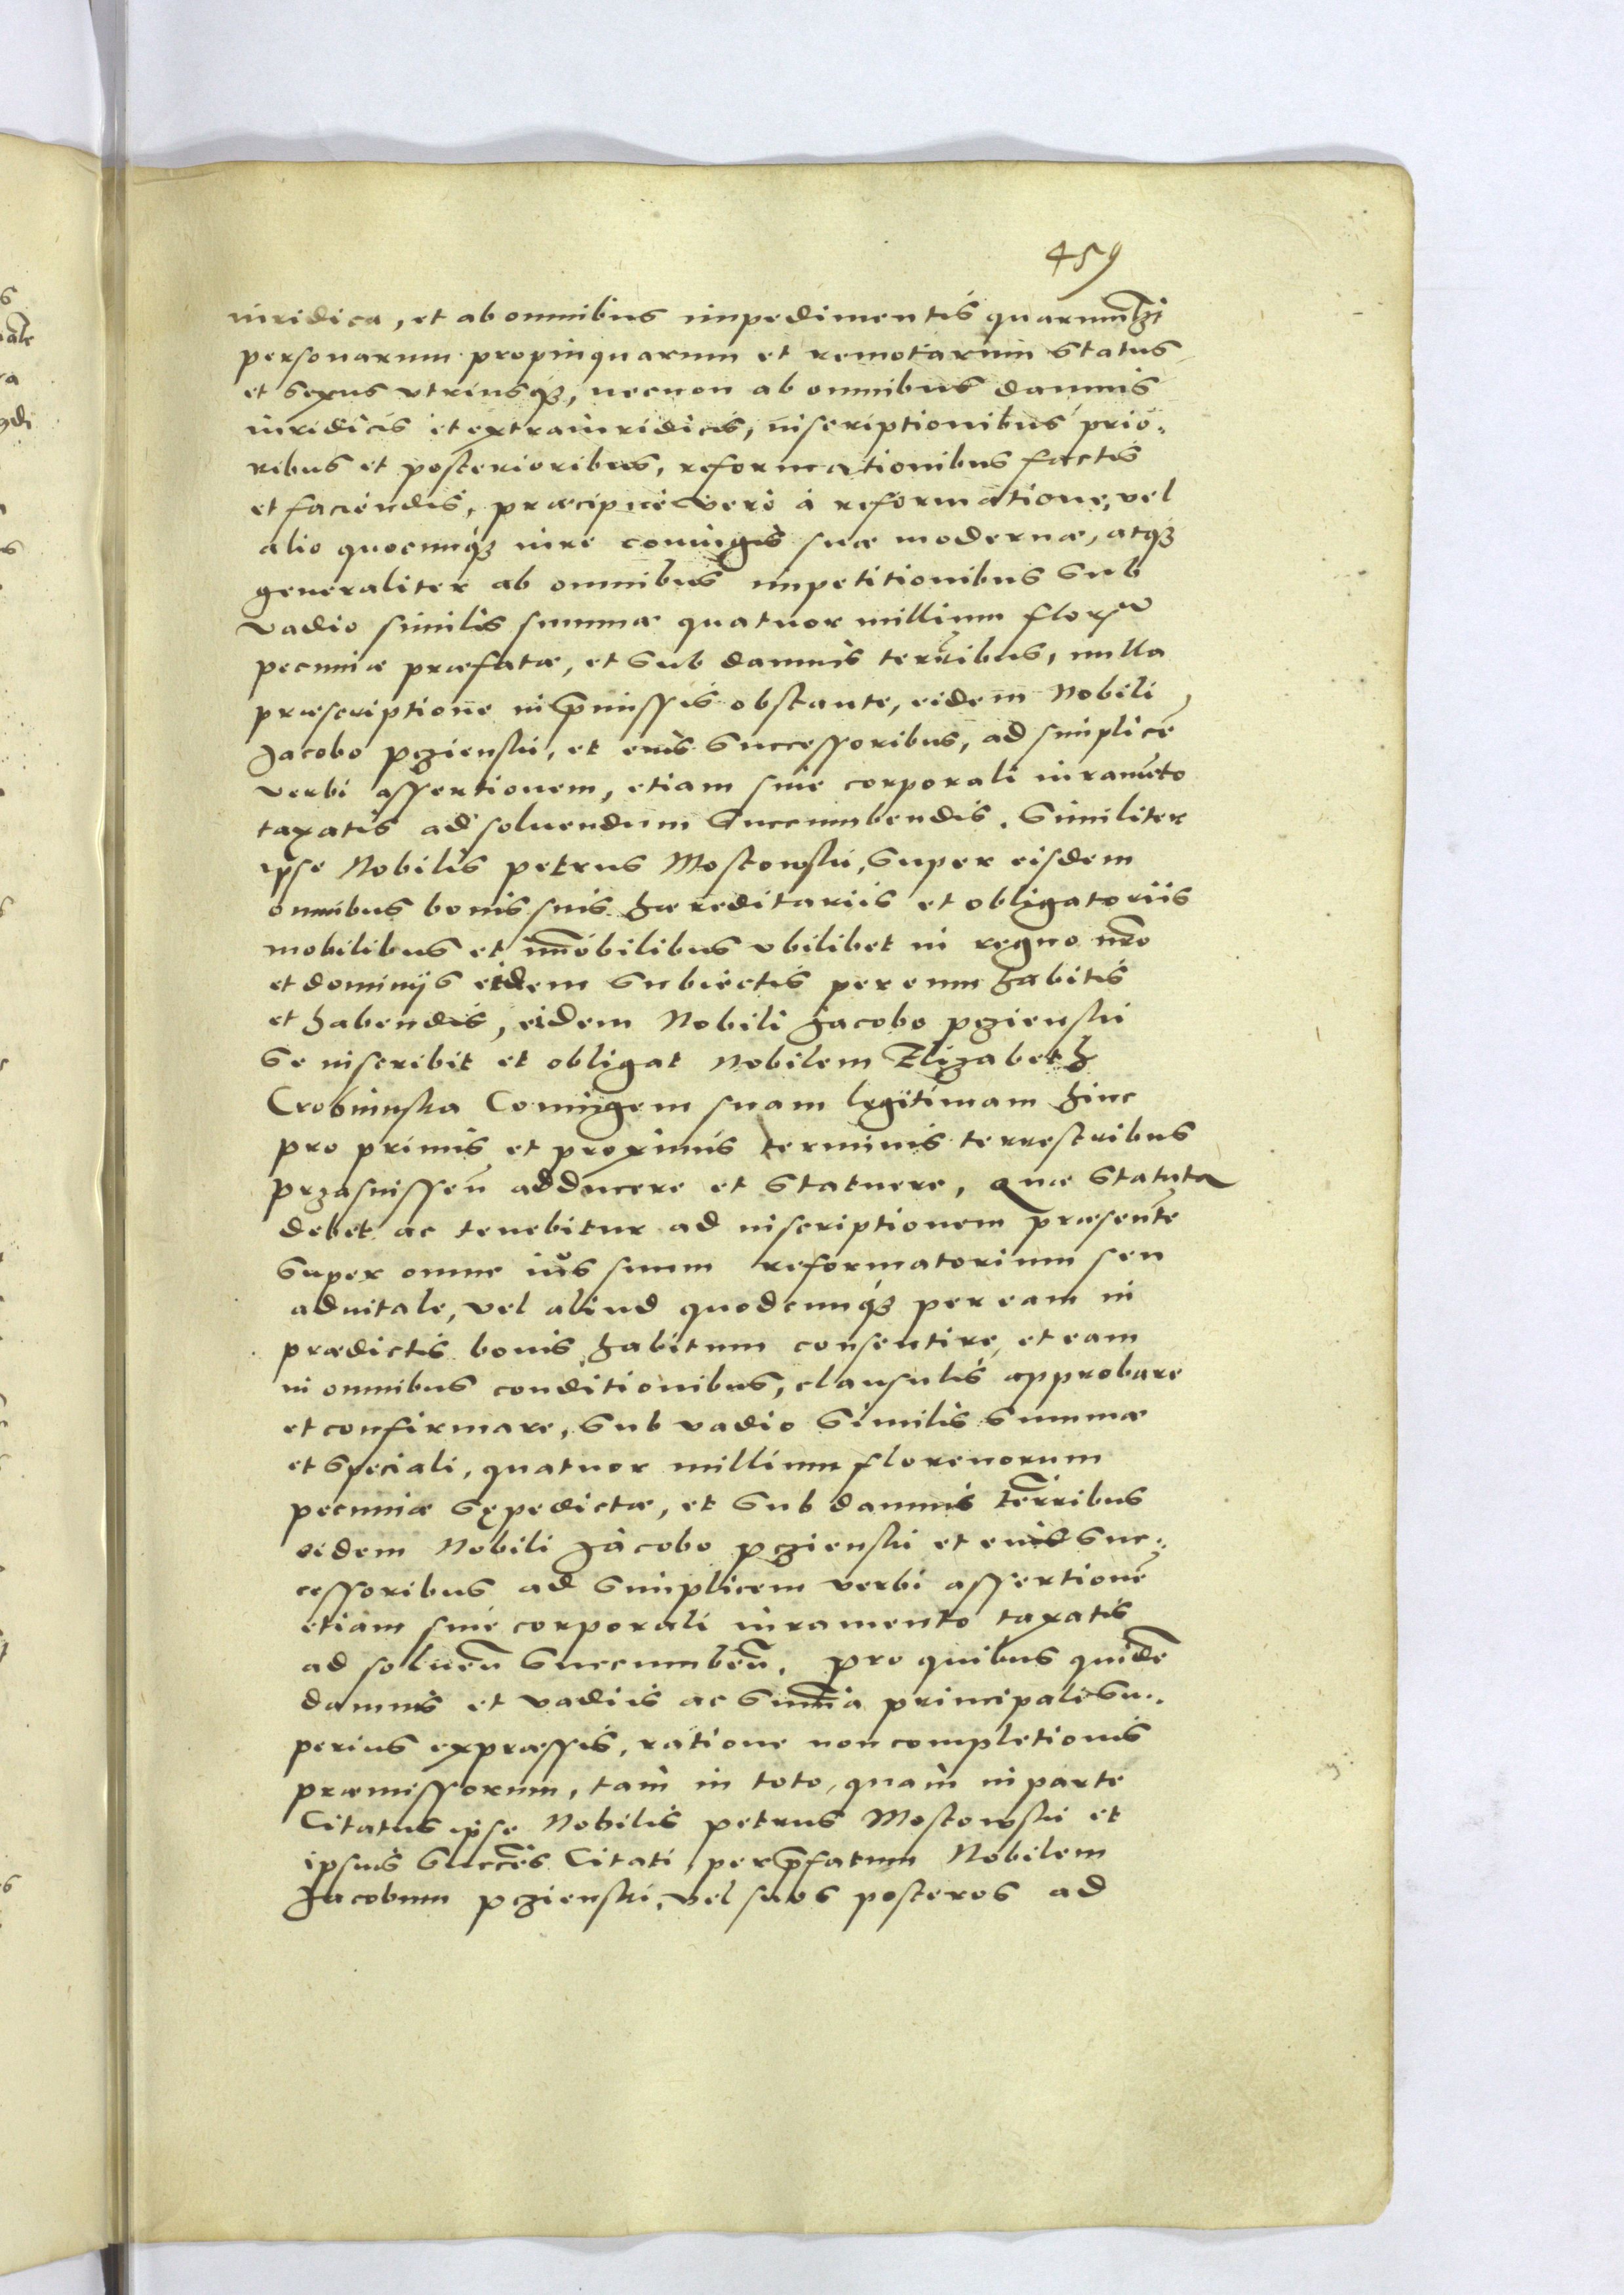 459
iuridica, et ab omnibus impedimentis quarumlibet
personarum propinquarum et remotarum status
et sexus vtriusq́ȝ, necnon ab omnibus damnis
iuridicis et extraiuridicis, inscriptionibus prio:
ribus et posterioribus, reformationibus factis
et faciendis, præcipuè verò à reformatione, vel
alio quocunq́ȝ iure coniugis suæ modernæ, atq́ȝ
generaliter ab omnibus impetitionibus sub
vadio similis summæ quatuor millium flor
pecuniæ præfatæ, et sub damnis terribus, nulla
præscriptione in p̄missis obstante, eidem Nobili
Jacobo pgienski, et eius successoribus, ad simplicē
verbi assertionem, etiam sine corporali iuramēto
taxatis ad soluendum succumbendis. Similiter
ipse Nobilis petrus Mostowski, super eisdem
omnibus bonis suis hæreditariis et obligatoriis
mobilibus et im̄obilibus vbilibet in regno nr̄o
et dominijs eidem subiectis per eum habitis
et habendis, eidem Nobili Jacobo pgienski
se inscribit et obligat Nobilem Elizabeth
Crobinska Coniugem suam legitimam hinc
pro primis et proximis terminis terrestribus
przasnisseñ adducere et statuere, Quæ statuta
debet ac tenebitur ad inscriptionem præsentē
super omne ius suum reformatorium seu
aduitale, vel aliud quodcunq́ȝ per eam in
prædictis bonis habitum consentire, et eam
in omnibus conditionibus, clausulis approbare
et confirmare, sub vadio similis summæ
et speciali, quatuor millium florenorum
pecuniæ sępedictæ, et sub damnis terr̄ribus
eidem Nobili Jacobo pgienski et eius suc:
cessoribus ad simplicem verbi assertionē
etiam sine corporali iuramento taxatis
ad soluen̄ succumben̄. pro quibus quidē
damnis et vadiis ac sum̄a principali su:
perius expræssis, ratione non completionis
præmissorum, tam in toto, quàm in parte
Citatus ipse Nobilis petrus Mostowski et
ipsius succēs Citati, per p̄fatum Nobilem
Jacobum pgienski, vel suos posteros ad